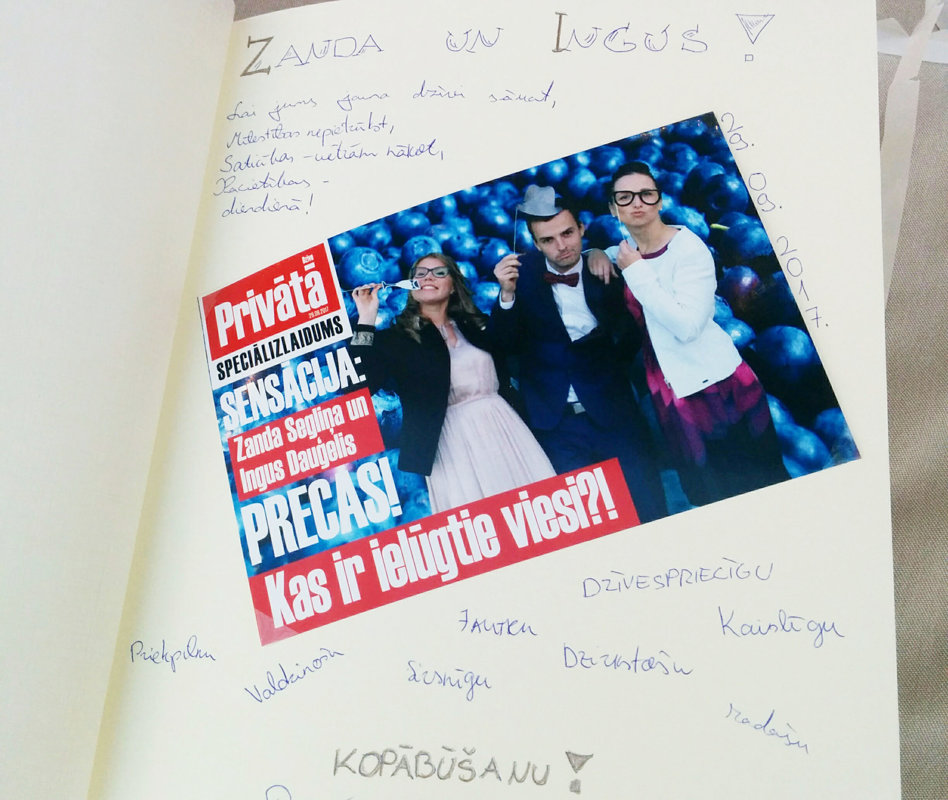 ZANDA UN INGUS!
Lai jums jauna dzīvi sākat,
Mīlestības nepietrūkst,
Saticības - nākot,
Pacietības -
dienā!
29. 09. 2017.
Dzīve
Privātā
29.09.2017
SPECIĀLIZLAIDUMS
SENSĀCIJA:
Zanda Segliņa un
Ingus Dauģelis
PRECAS!
Kas ir ielūgtie viesi?!
DZĪVESPRIECĪGU
JAUTRU
Kaislīgu
Priekpilnu
Valdzinošu
Sirsnīgu
Dzirkstošu
Radošu
KOPĀBŪŠANU!